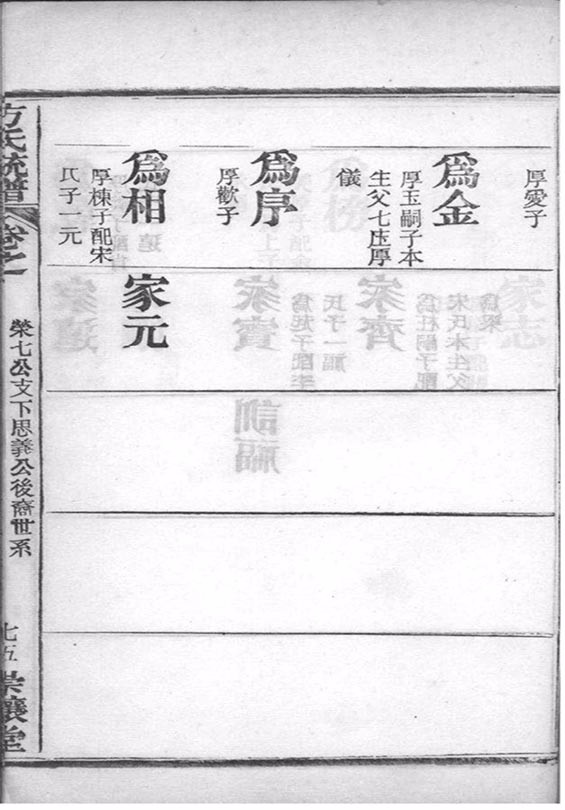 厚愛子
爲金
厚玉嗣子本
生父七庒厚
儀
爲序
厚歡子
爲相
厚棟子配宋
氏子一元
家元
方氏統譜
卷之
榮七公支下思義公後裔世系
七五
崇讓堂